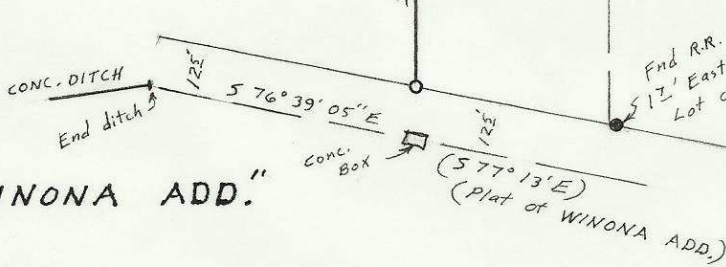 CONC. DITCH
End ditch
125'
S 76° 39' 05" E
CONC.
BOX
125'
(S 77° 13' E)
(Plat of WINONA ADD.)
Fnd R.R.
East
Lot
NONA ADD."